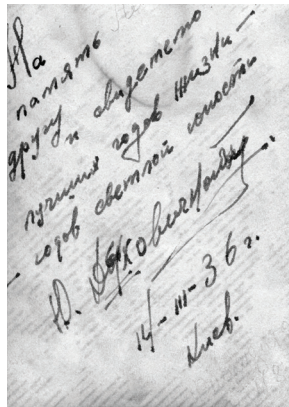 На
память
другу и свидетелю
лучших годов жизни —
— годов светлой юности
Ю.
14-III-36 г.
Киев.